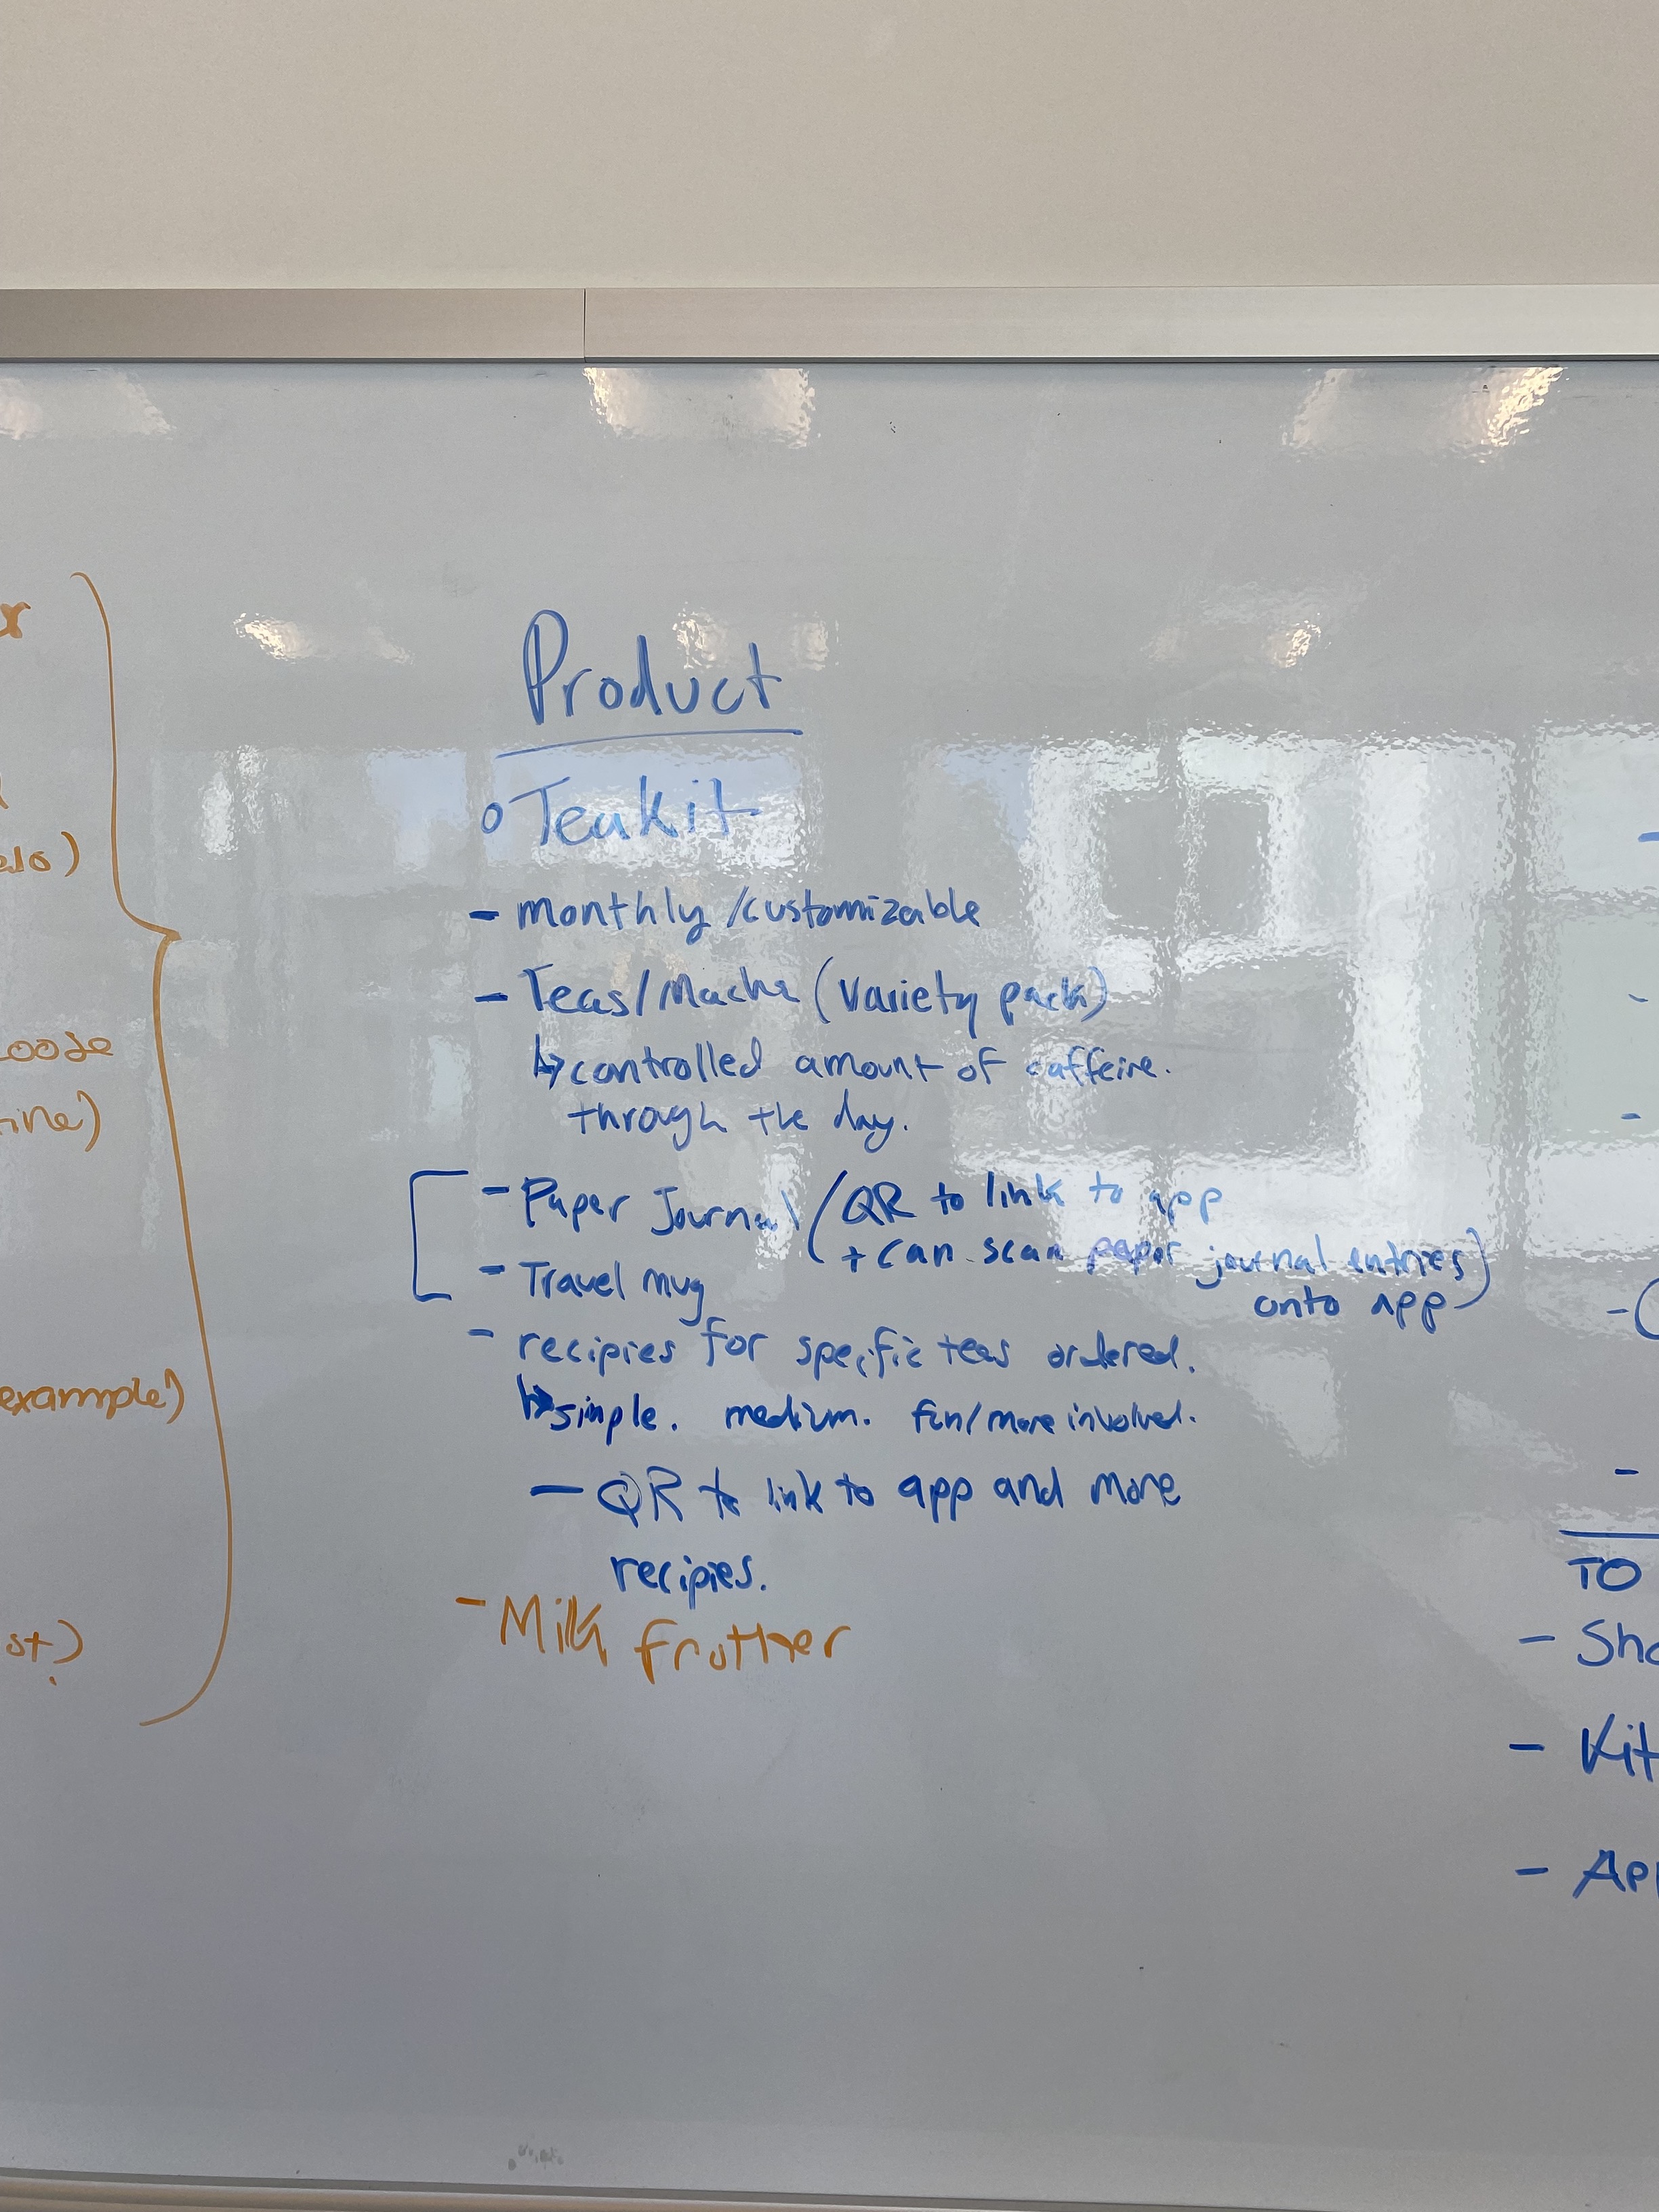 Product
o Teakit
- monthly/customizable
- Teas/Macha (Variety pack)
↳ controlled amount of caffeine.
through the day.
- Paper Journal (QR to link to app
+ can scan paper journal entries)
onto app
- Travel mug
- recipies for specific teas ordered.
↳ simple. medium. fun/more involved.
- QR to link to app and more
recipies.
- Milk frother
oose
example)
TO
- Kit